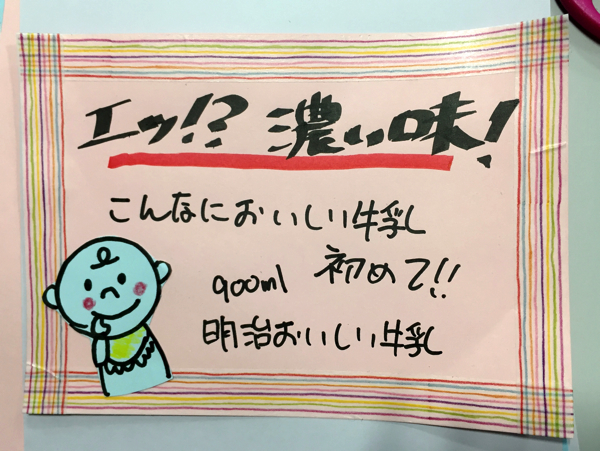 エッ!? 濃い味!
こんなにおいしい牛乳
初めて!!
900ml
明治おいしい牛乳